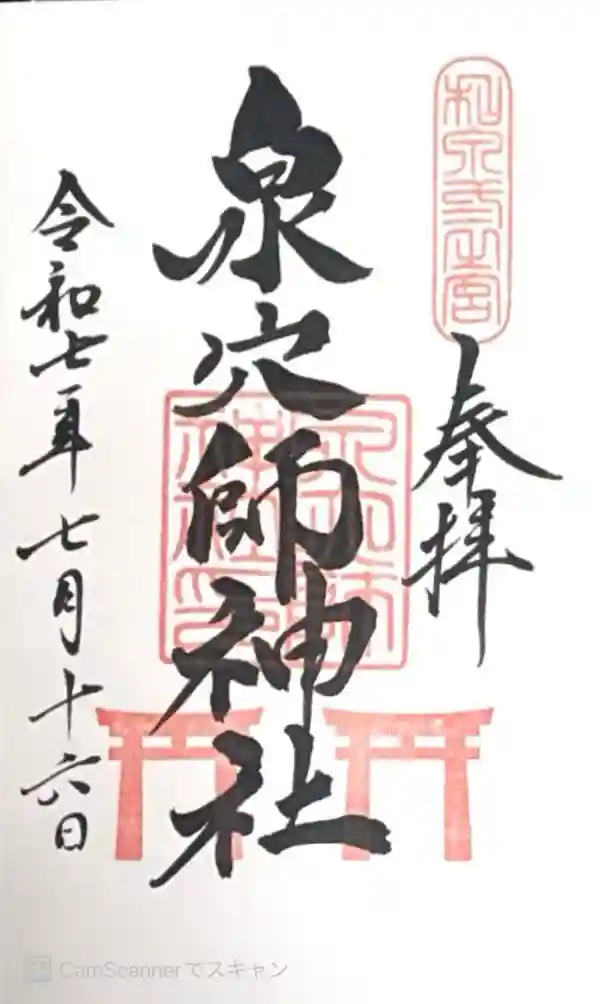 和泉式之宮
奉拝
泉穴師神社
泉穴師神社印
令和七年七月十六日
CamScannerでスキャン